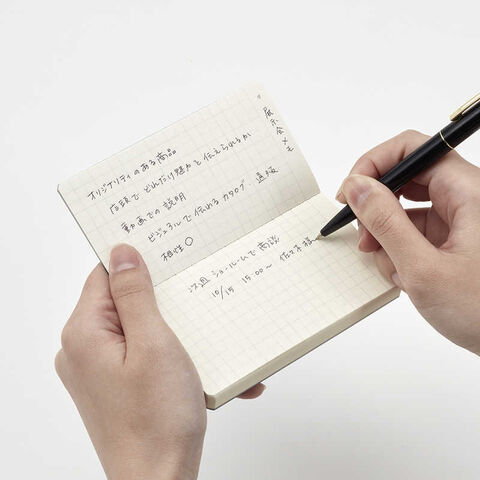 展示会メモ
オリジナリティのある商品
店頭でどれだけ魅力を伝えられるか
動画での説明
ビジュアルで伝れるカタログ 通販
相性○
次週 ショールームで商談
10/15 15:00〜 佐々木様